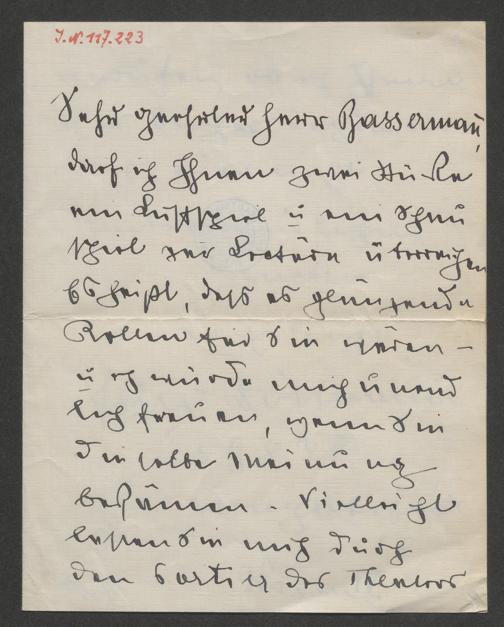 J.N. 117.223
Sehr geehrter Herr Bassermann,
darf ich Ihnen zwei Stücke
ein Lustspiel u ein Schau
spiel zur Lectüre überreichen
Es heißt, daß es glänzende
Rollen für Sie wären –
u ich würde mich unend
lich freuen, wenn Sie
dieselbe Meinung
bekämen. Vielleicht
lassen Sie mich durch
den Portier des Theaters